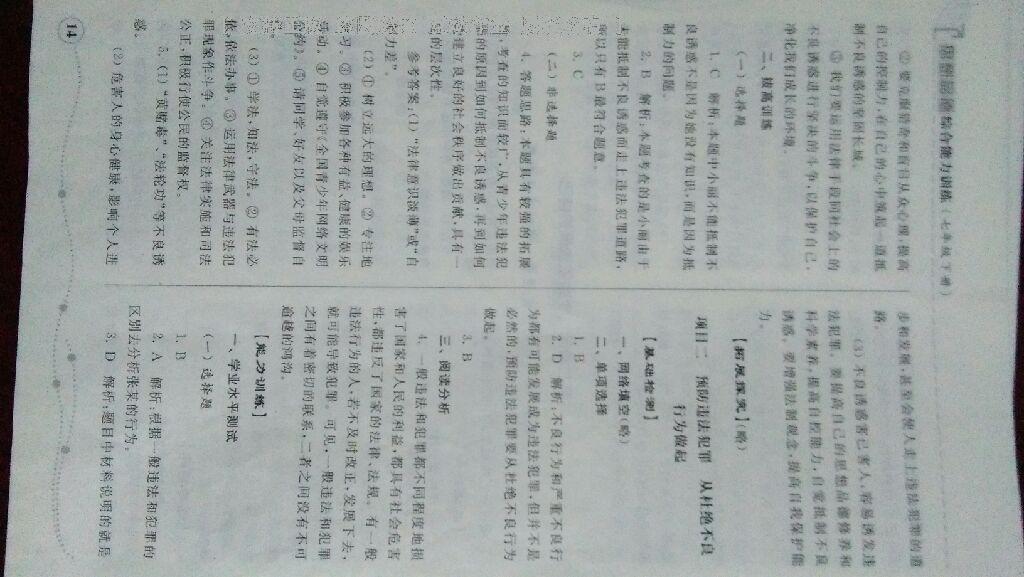 思想品德综合能力训练(七年级下册)
② 要克服猎奇和盲目从众心理,提高
自己的控制力,在自己的心中筑起一道抵
制不良诱惑的坚固长城。
③ 我们要运用法律手段同社会上的
不良诱惑进行坚决的斗争,以保护自己,
净化我们成长的环境。
二、拔高训练
(一) 选择题
1. C 解析:本题中小丽不能抵制不
良诱惑不是因为她没有知识,而是因为抵
制力的问题。
2. B 解析:本题考查的是小丽由于
未能抵制不良诱惑而走上违法犯罪道路,
所以只有 B 最符合题意。
3. C
(二) 非选择题
4. 答题思路:本题具有较强的拓展
考查的知识面较广,从青少年违法犯
罪的原因到如何抵制不良诱惑,再到如何
建立良好的社会秩序做出贡献,具有一
定的层次性。
参考答案:(1)“法律意识淡薄”或“自
制力差”。
(2) ① 树立远大的理想。② 专注地
学习。③ 积极参加各种有益、健康的娱乐
活动。④ 自觉遵守《全国青少年网络文明
公约》。⑤ 请同学、好友以及父母监督自
(3) ① 学法,知法,守法。② 有法必
依,依法办事。③ 运用法律武器与违法犯
罪现象作斗争。④ 关注法律实施和司法
公正,积极行使公民的监督权。
5. (1)“黄赌毒”、“法轮功”等不良诱
惑。
(2) 危害人的身心健康,影响个人进
14
步和发展,甚至会使人走上违法犯罪的道
路。
(3) 不良诱惑害己害人,容易诱发违
法犯罪。要提高自己的思想品德修养和
科学素养,提高自控能力,自觉抵制不良
诱惑。要增强法制观念,提高自我保护能
力。
【拓展探究】(略)
项目二 预防违法犯罪 从杜绝不良
行为做起
【基础检测】
一、网络填空(略)
二、单项选择
1. B
2. D 解析:不良行为和严重不良行
为都有可能发展成为违法犯罪,但并不是
必然的,预防违法犯罪要从杜绝不良行为
做起。
3. B
三、阅读分析
4. 一般违法和犯罪都不同程度地损
害了国家和人民的利益,都具有社会危害
性,都违反了国家的法律、法规。有一般
违法行为的人,若不及时改正,发展下去,
就可能导致犯罪。可见,一般违法和犯罪
之间有着密切的联系,二者之间没有不可
逾越的鸿沟。
【能力训练】
一、学业水平测试
(一) 选择题
1. B
2. A 解析:根据一般违法和犯罪的
区别去分析张某的行为。
3. D 解析:题目中材料说明的就是